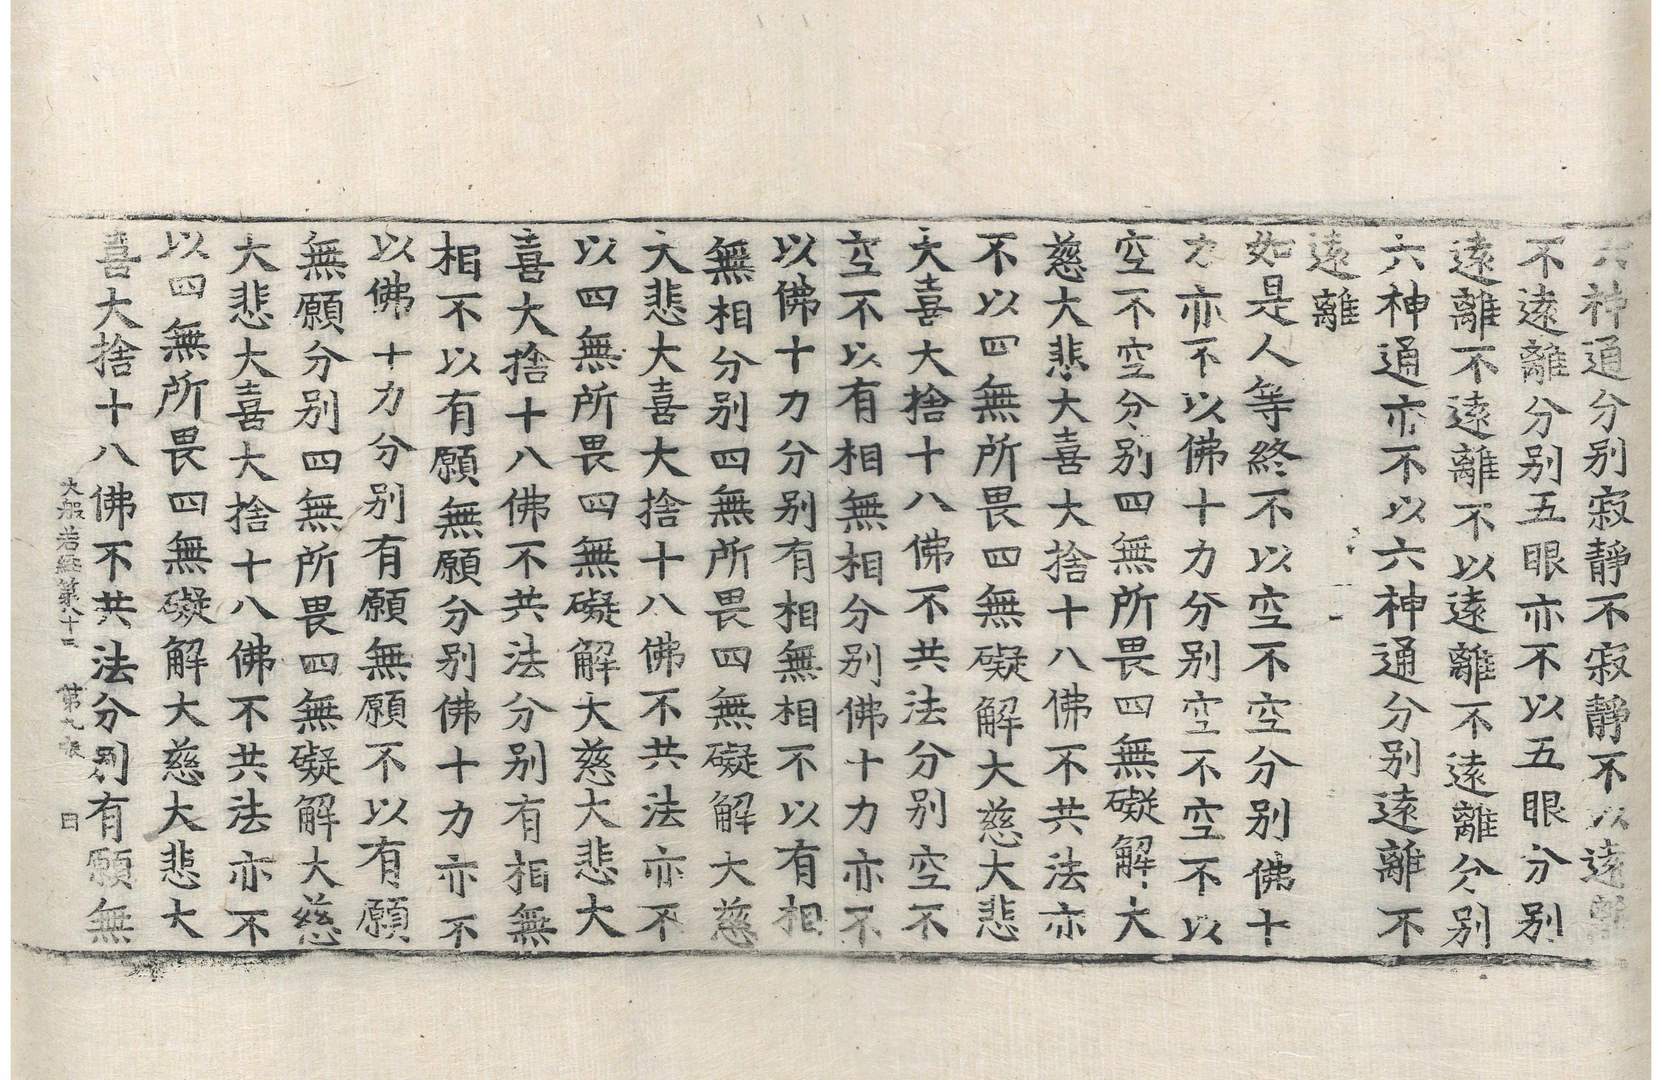 六神通分別寂靜不寂靜不以遠離
不遠離分別五眼亦不以五眼分別
遠離不遠離不以遠離不遠離分別
六神通亦不以六神通分別遠離不
遠離
如是人等終不以空不空分別佛十
力亦不以佛十力分別空不空不以
空不空分別四無所畏四無礙解大
慈大悲大喜大捨十八佛不共法亦
不以四無所畏四無礙解大慈大悲
大喜大捨十八佛不共法分別空不
空不以有相無相分別佛十力亦不
以佛十力分別有相無相不以有相
無相分別四無所畏四無礙解大慈
大悲大喜大捨十八佛不共法亦不
以四無所畏四無礙解大慈大悲大
喜大捨十八佛不共法分別有相無
相不以有願無願分別佛十力亦不
以佛十力分別有願無願不以有願
無願分別四無所畏四無礙解大慈
大悲大喜大捨十八佛不共法亦不
以四無所畏四無礙解大慈大悲大
喜大捨十八佛不共法分別有願無
大般若經第八十二 第九張 日